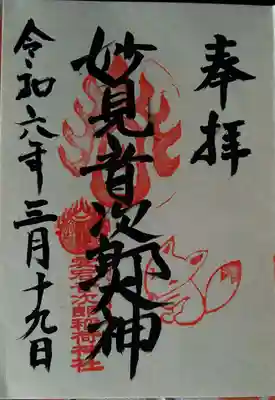 奉拝
妙見首次郎大神
次郎稲荷神社
令和六年三月十九日